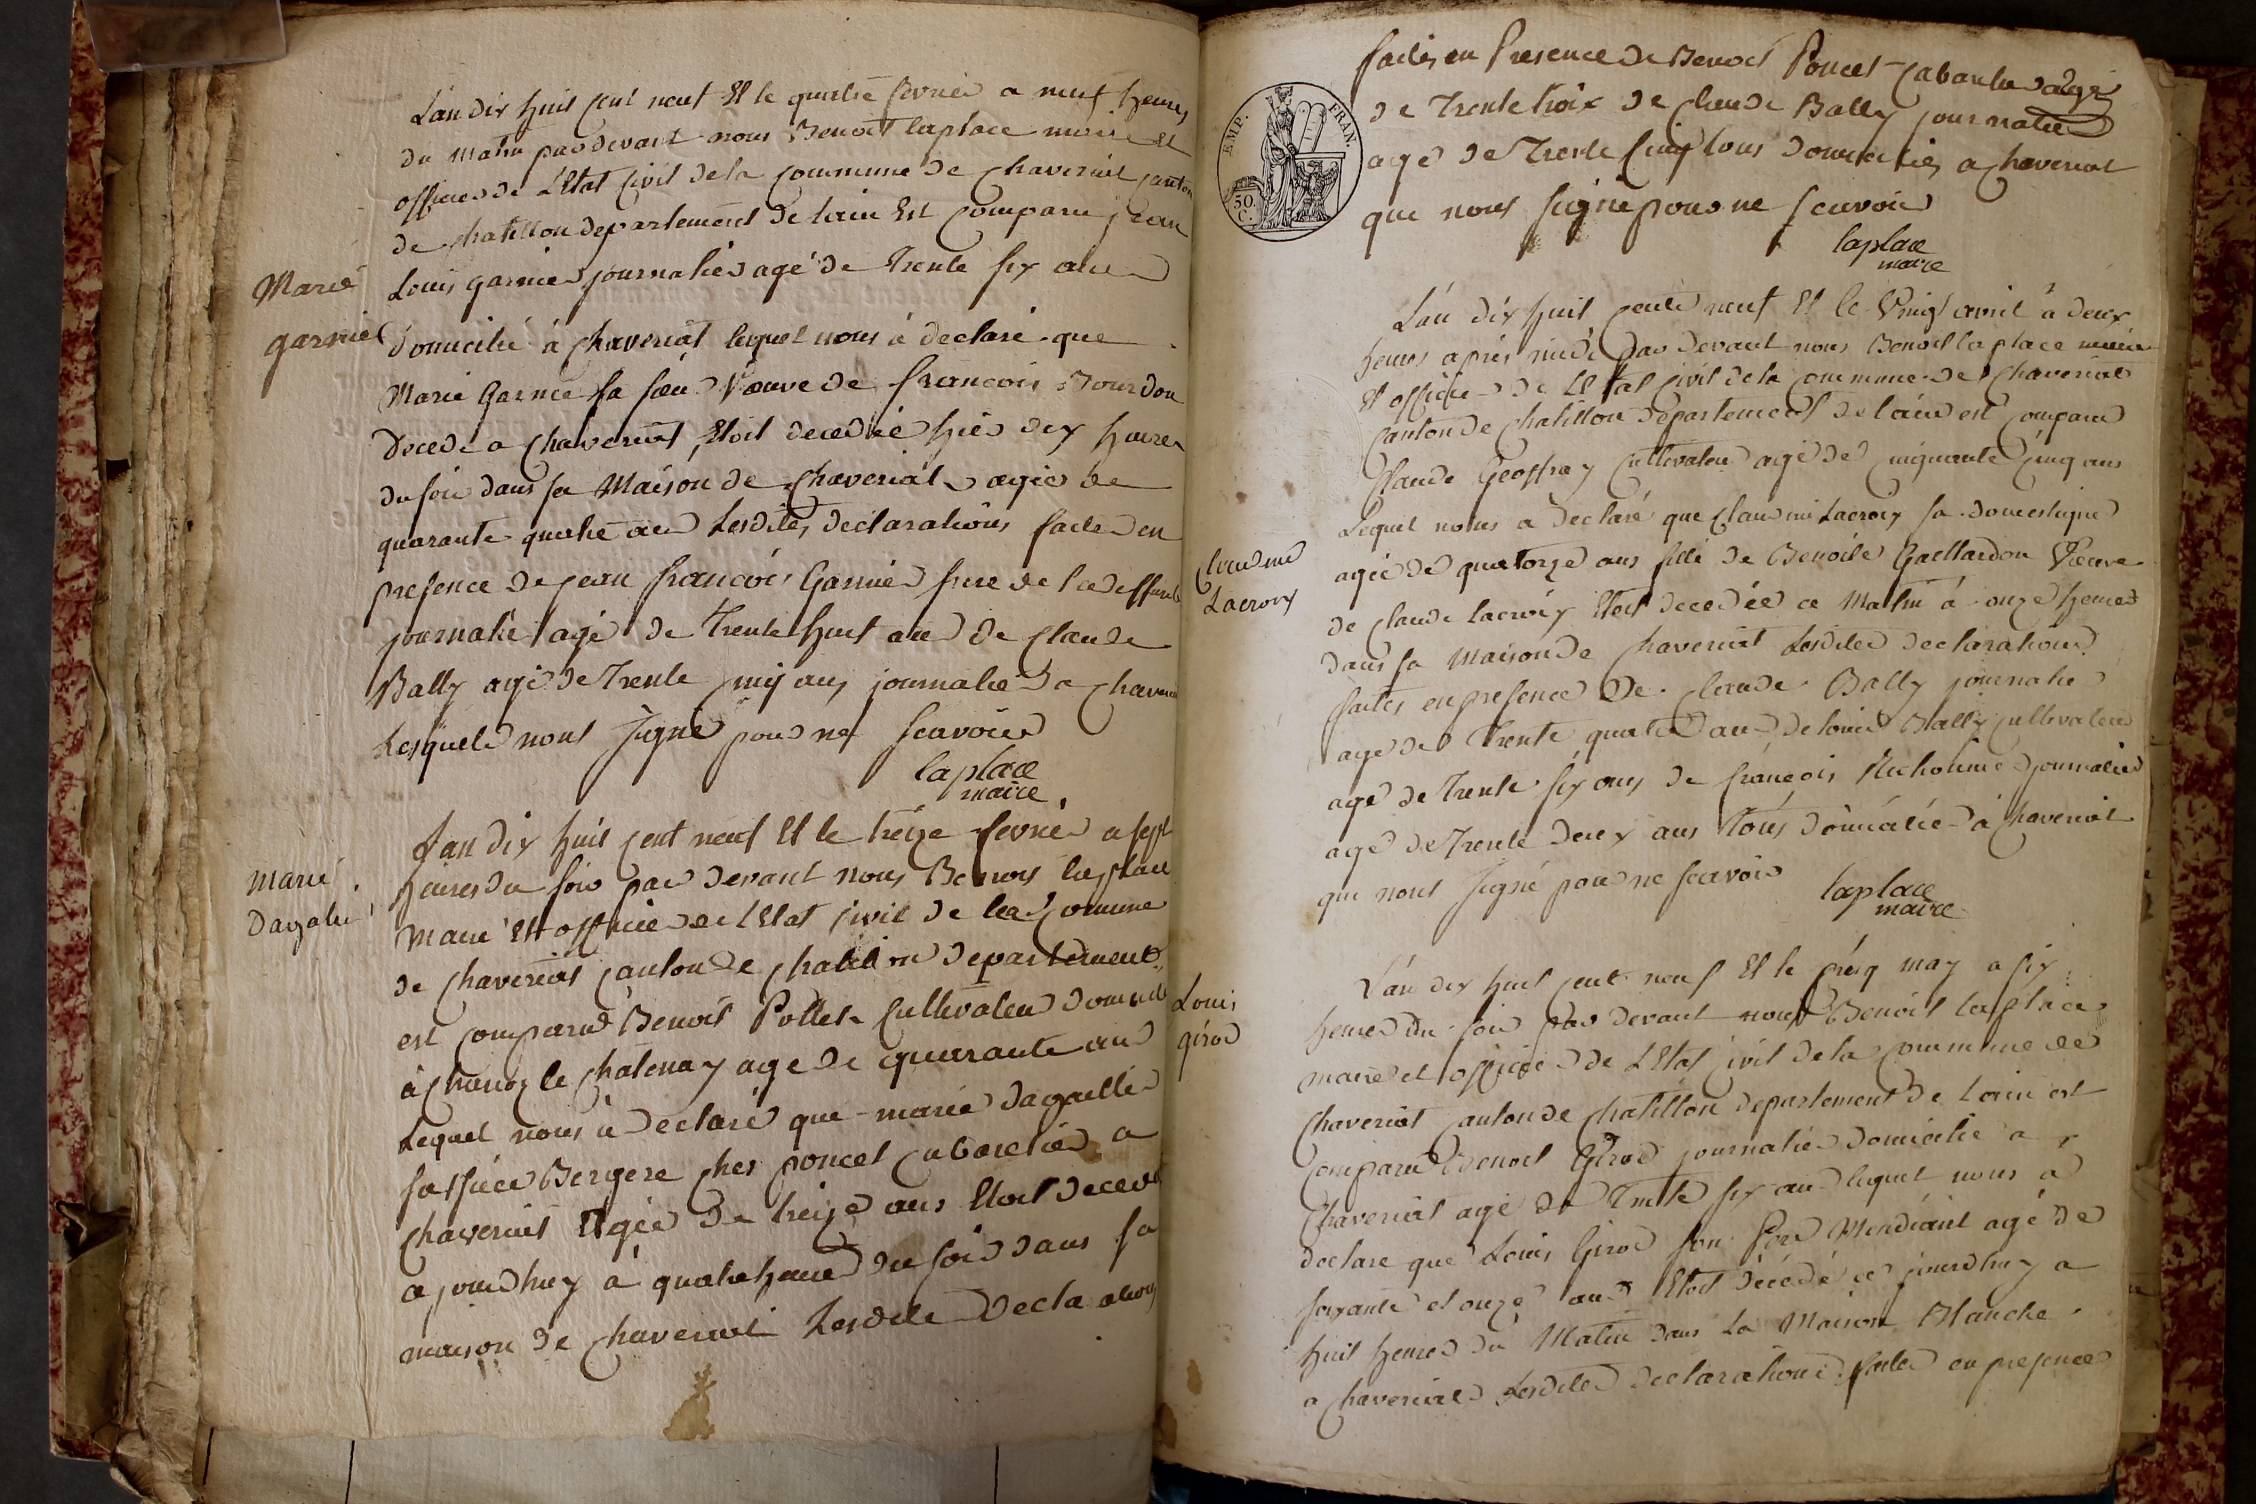 L'an dix huit cent neuf Et le quatre fevrier a neuf heures
du matin par devant nous Benoit laplace maire et
officier de L'Etat Civil de la Commune de Chaveriat Canton
de Chatillon departement de L'ain Est Comparu jean
Louis garnier journalier agé de Trente six ans
Marie
garnier
domicilié à Chaveriat lequel nous à declaré que
Marie Garnier sa soeur Veuve de francois Bourdon
Decede a Chaveriat, Etoit decedéé hier dix heures
du soir dans sa Maison de Chaveriat agée de
quarante quatre ans Lesdites declarations faites en
presence de jean francois Garnier frere de la deffunte
journalier agé de Trente huit ans de Claude
Bally agé de Trente Cinq ans journalier a Chaveriat
Lesquels nont signé pour ne scavoir
laplace
maire
L'an dix huit cent neuf Et le treize fevrier a sept
heures du soir par devant nous Benoit laplace
Marie
Dagalié
Maire Et officier de l'Etat Civil de la Comune
de Chaveriat Canton de Chatillon departement
est comparu Benoit Pollet Cultivateur domicilié
à Chanoz le Chatenay age de quarante ans
Lequel nous à declaré que marie dagallié
sa niéce Bergere chez poncet Cabaretier a
Chaveriat Agée de treize ans Etoit decedé
ce jourdhuy à quatre heure du soir dans sa
maison de Chaveriat Lesdite Declarations
EMP. FRAN.
50.
C.
faites en Presence de Benoit Poncet Cabaretier agé
de Trente trois de Claude Bally journalier
agé de Trente Cinq tous domiciliés a Chaveriat
que nont signé pour ne scavoir
laplace
maire
L'an dix huit Cent neuf Et le Vingt avril à deux
heures aprés midi par devant nous Benoit laplace maire
Et officier de L'Etat Civil de la Commune de Chaveriat
Canton de Chatillon departement de l'ain est Comparu
Claude Geoffray Cultivateur agé de Cinquante Cinq ans
Lequel nous a declaré que Claudine Lacroix sa domestique
Claudine
Lacroix
agée de quatorze ans fille de Benoite Gaillardon Veuve
de Claude lacroix Etoit decedée ce Matin à onze heures
dans sa Maison de Chaveriat Lesdites declarations
faites en presence de Claude Bally journalier
agé de Trente quatre ans de louis Bally Cultivateur
agé de Trente six ans de françois journalier
agé de Trente deux ans Tous domicilié à Chaveriat
qui nont signé pour ne scavoir
laplace
maire
L'an dix huit cent neuf Et le cinq may a six
heures du soir par devant nous Benoit laplace
Louis
girod
maire et officier de L'Etat Civil de la Commune de
Chaveriat Canton de Chatillon departement de L'ain est
Comparu Benoit Girod journalier domicilié a
Chaveriat agé de Trente six ans lequel nous à
declare que Louis Girod son Pere Mendiant agé de
soixante et onze ans Etoit décédé ce jourdhuy a
huit heures du Matin dans La Maison Blanche
a Chaveriat Lesdites declarations faites en presence